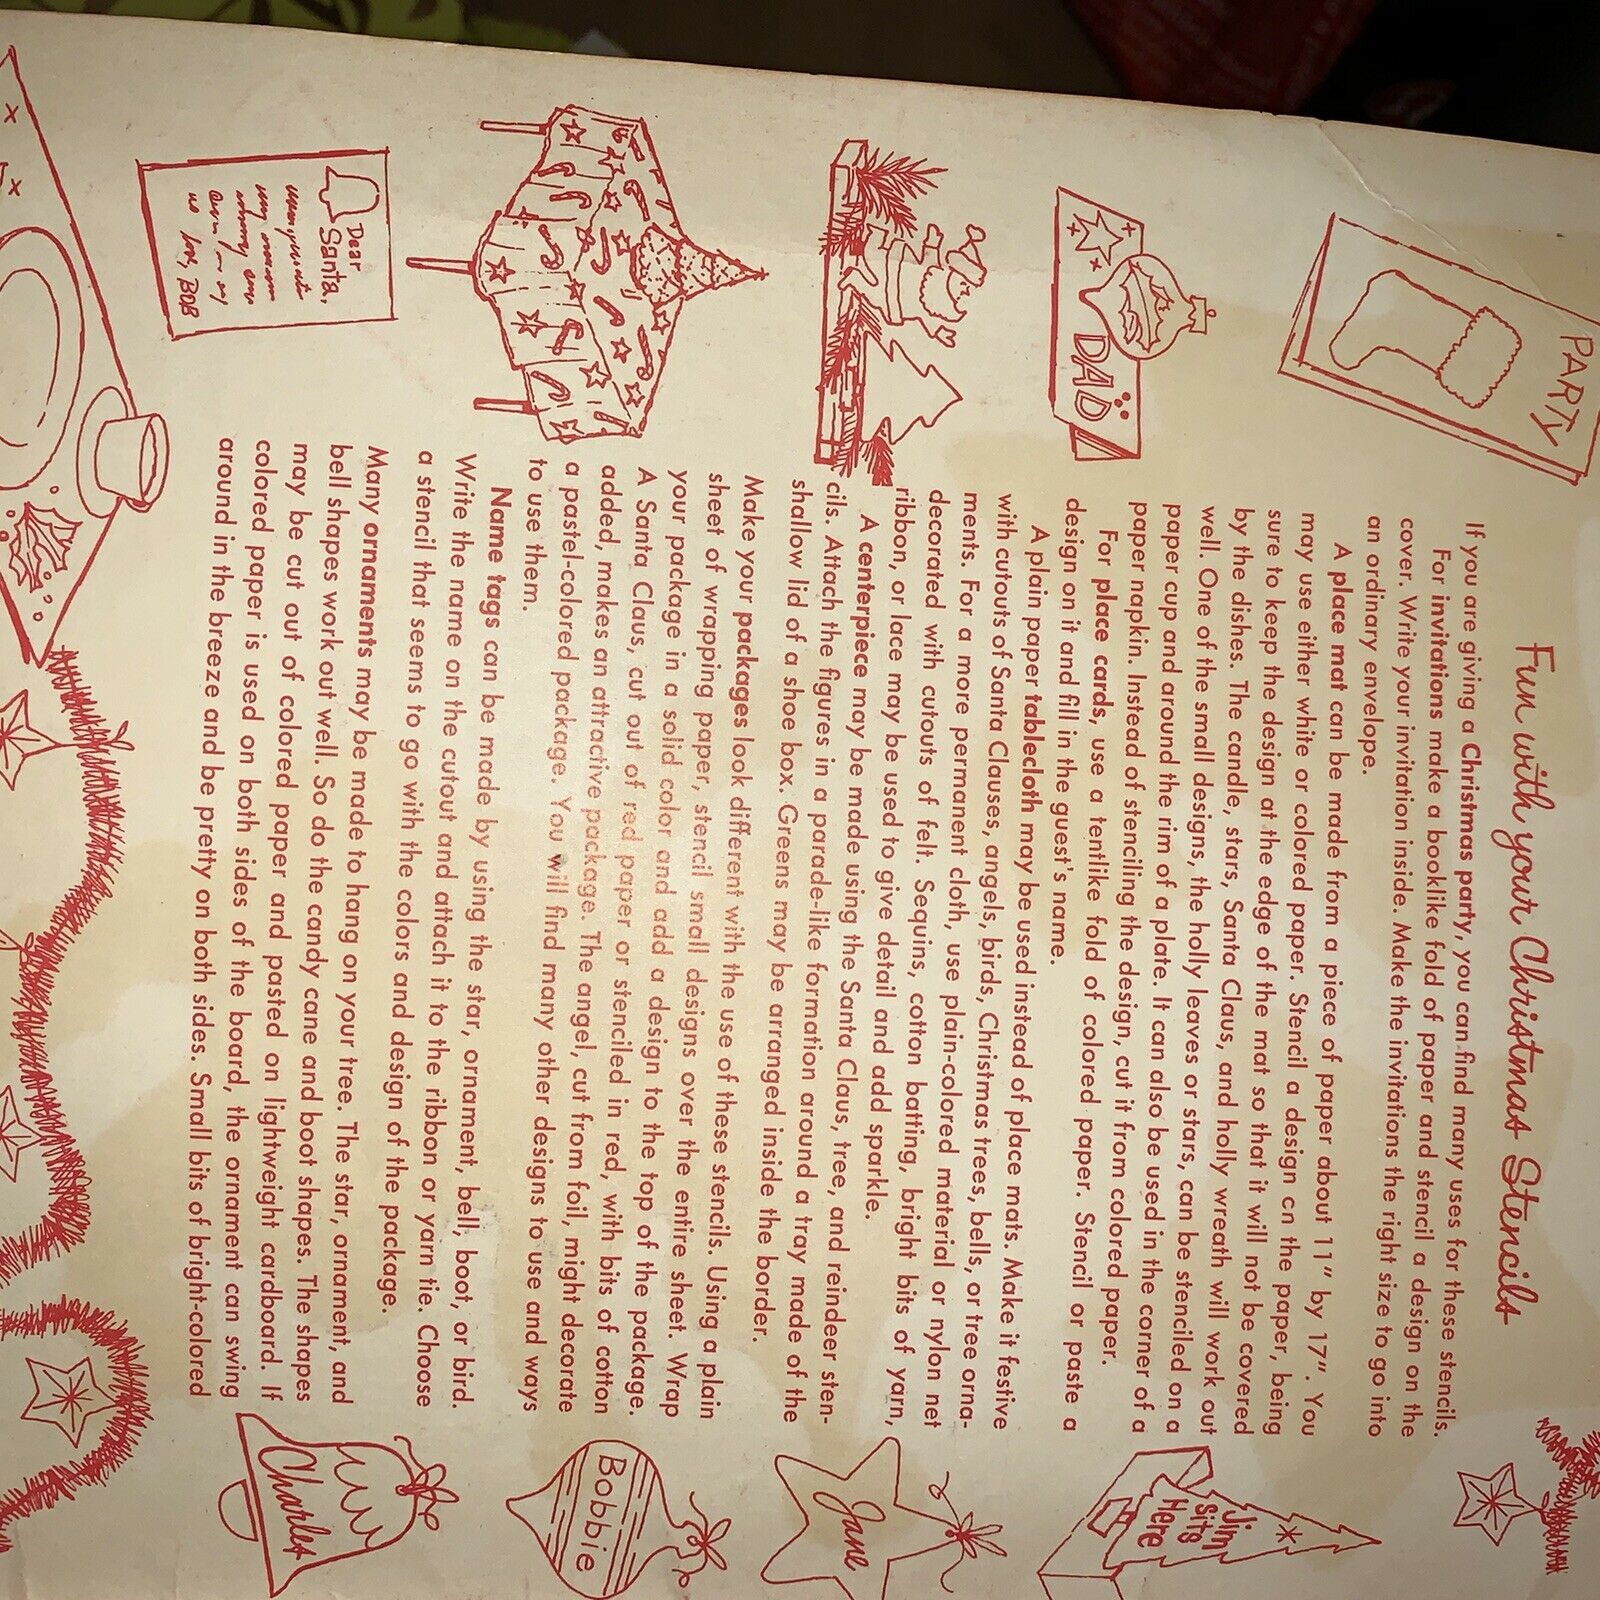 Fun with your Christmas Stencils
If you are giving a Christmas party, you can find many uses for these stencils.
For invitations make a booklike fold of paper and stencil a design on the
cover. Write your invitation inside. Make the invitations the right size to go into
an ordinary envelope.
A place mat can be made from a piece of paper about 11" by 17". You
may use either white or colored paper. Stencil a design on the paper, being
sure to keep the design at the edge of the mat so that it will not be covered
by the dishes. The candle, stars, Santa Claus, and holly wreath will work out
well. One of the small designs, the holly leaves or stars, can be stenciled on a
paper cup and around the rim of a plate. It can also be used in the corner of a
paper napkin. Instead of stencilling the design, cut it from colored paper.
For place cards, use a tentlike fold of colored paper. Stencil or paste a
design on it and fill in the guest's name.
A plain paper tablecloth may be used instead of place mats. Make it festive
with cutouts of Santa Clauses, angels, birds, Christmas trees, bells, or tree orna-
ments. For a more permanent cloth, use plain-colored material or nylon net
decorated with cutouts of felt. Sequins, cotton batting, bright bits of yarn,
ribbon, or lace may be used to give detail and add sparkle.
A centerpiece may be made using the Santa Claus, tree, and reindeer sten-
cils. Attach the figures in a parade-like formation around a tray made of the
shallow lid of a shoe box. Greens may be arranged inside the border.
Make your packages look different with the use of these stencils. Using a plain
sheet of wrapping paper, stencil small designs over the entire sheet. Wrap
your package in a solid color and add a design to the top of the package.
A Santa Claus, cut out of red paper or stenciled in red, with bits of cotton
added, makes an attractive package. The angel, cut from foil, might decorate
a pastel-colored package. You will find many other designs to use and ways
to use them.
Name tags can be made by using the star, ornament, bell, boot, or bird.
Write the name on the cutout and attach it to the ribbon or yarn tie. Choose
a stencil that seems to go with the colors and design of the package.
Many ornaments may be made to hang on your tree. The star, ornament, and
bell shapes work out well. So do the candy cane and boot shapes. The shapes
may be cut out of colored paper and pasted on lightweight cardboard. If
colored paper is used on both sides of the board, the ornament can swing
around in the breeze and be pretty on both sides. Small bits of bright-colored
PARTY
DAD
Dear
Santa,
BOB
Jim
Sits
Here
Jane
Bobbie
Charles